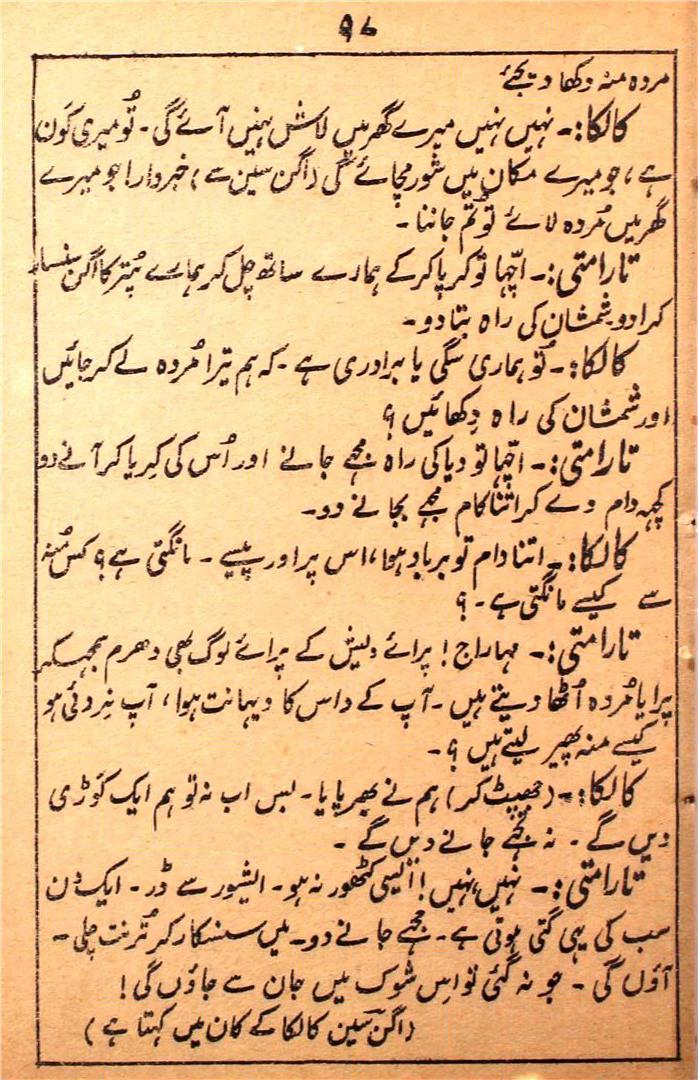 ۹۸
مردہ منہ دکھا دیجئے
کالکا:۔ نہیں نہیں میرے گھر میں لاش نہیں آئے گی۔ تُو میری کَون
ہے، جو میرے مکان میں شور مچائے گی (اگن سین سے) خبردار! جو میرے
گھر میں مُردہ لائے تو تم جاننا۔
تارامتی:۔ اچّھا تو کرپا کر کے ہمارے ساتھ چل کر ہمارے پُتر کا اگن سنسار
کرا دو۔ شمشان کی راہ بتا دو۔
کالکا:۔ تُو ہماری سگی یا برادری ہے۔ کہ ہم تیرا مُردہ لے کر جائیں
اور شمشان کی راہ دِکھائیں؟
تارامتی:۔ اچّھا تو دیا کی راہ مجھے جانے اور اُس کی کِریا کر آنے دو
کچھ دام دے کر اتنا کام مجھے بجا نے دو۔
کالکا:۔ اتنا دام تو برباد ہوا، اس پر اور پیسے۔ مانگتی ہے؟ کس مُنہ
سے کیسے مانگتی ہے۔؟
تارامتی:۔ مہاراج! پرائے دیش کے پرائے لوگ بھی دھرم سمجھکر
پرایا مُردہ اُٹھا دیتے ہیں۔ آپ کے داس کا دیہانت ہوا، آپ نِردئی ہو
کیسے منہ پھیر لیتے ہیں؟۔
کالکا:۔ (جھپٹ کر) ہم نے بھر پایا۔ بس اب نہ تو ہم ایک کَوڑی
دیں گے۔ نہ تجھے جانے دیں گے۔
تارامتی:۔ نہیں، نہیں! اَیسی کٹھور نہ ہو۔ ایشور سے ڈر۔ ایک دن
سب کی یہی گتی ہوتی ہے۔ مجھے جانے دو۔ میں سنسکار کر تُرنت چلی۔
آؤں گی۔ جو نہ گئی تو اِس شوک میں جان سے جاؤں گی!
(اگن سین کالکا کے کان میں کہتا ہے)